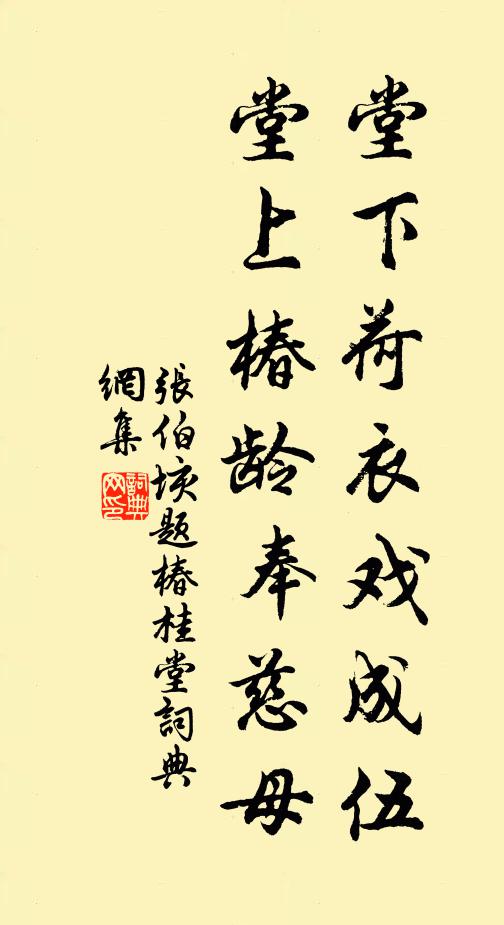 堂下荷衣戏成伍
堂上椿龄奉慈母
張伯垓题椿桂堂詞典
網集
詞典
网印